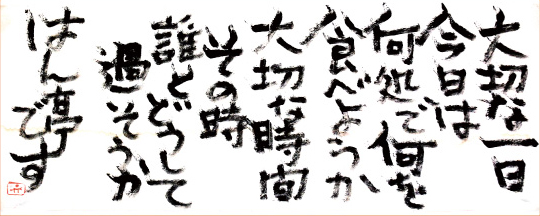 大切な一日
今日は
何処で何を
食べようか
大切な時間
その時
誰とどうして
過そうか
はん亭です